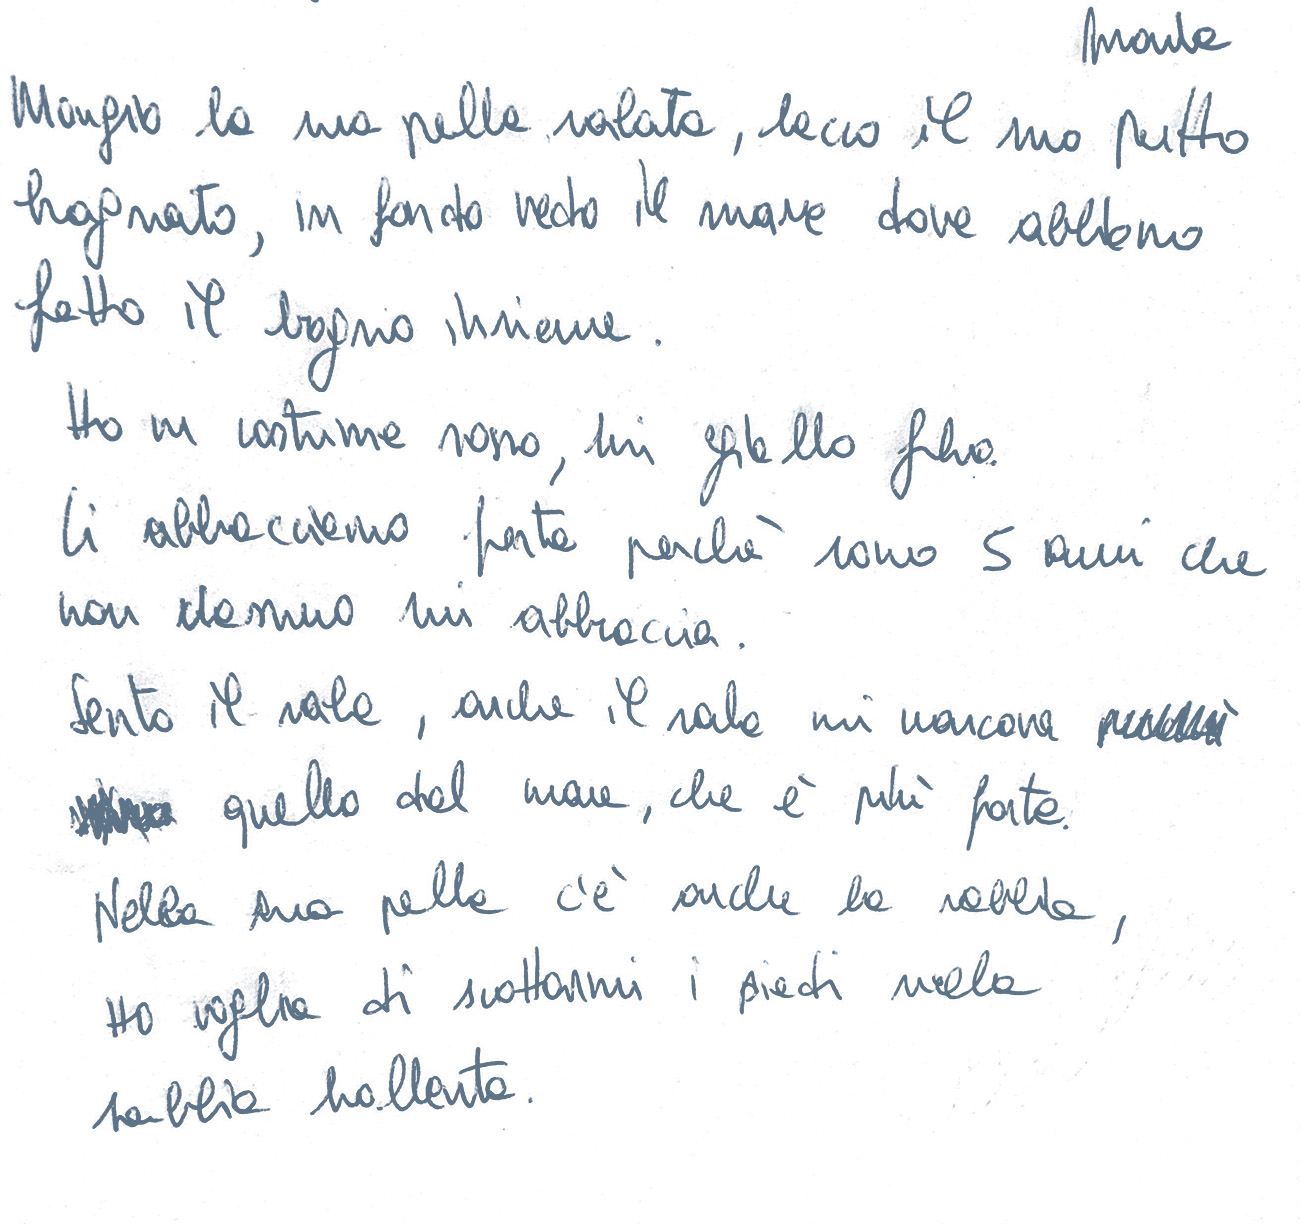 Mangio la sua pelle salata, lecco il suo petto
bagnato, in fondo vedo il mare dove abbiamo
fatto il bagno insieme.
Ho un costume rosso, lui giallo fluo.
Ci abbracciamo forte perché sono 5 anni che
non nessuno mi abbraccia.
Sento il sale, anche il sale mi mancava
quello del mare, che è più forte.
Nella sua pelle c'è anche la sabbia,
Ho voglia di scottarmi i piedi nella
sabbia bollente.